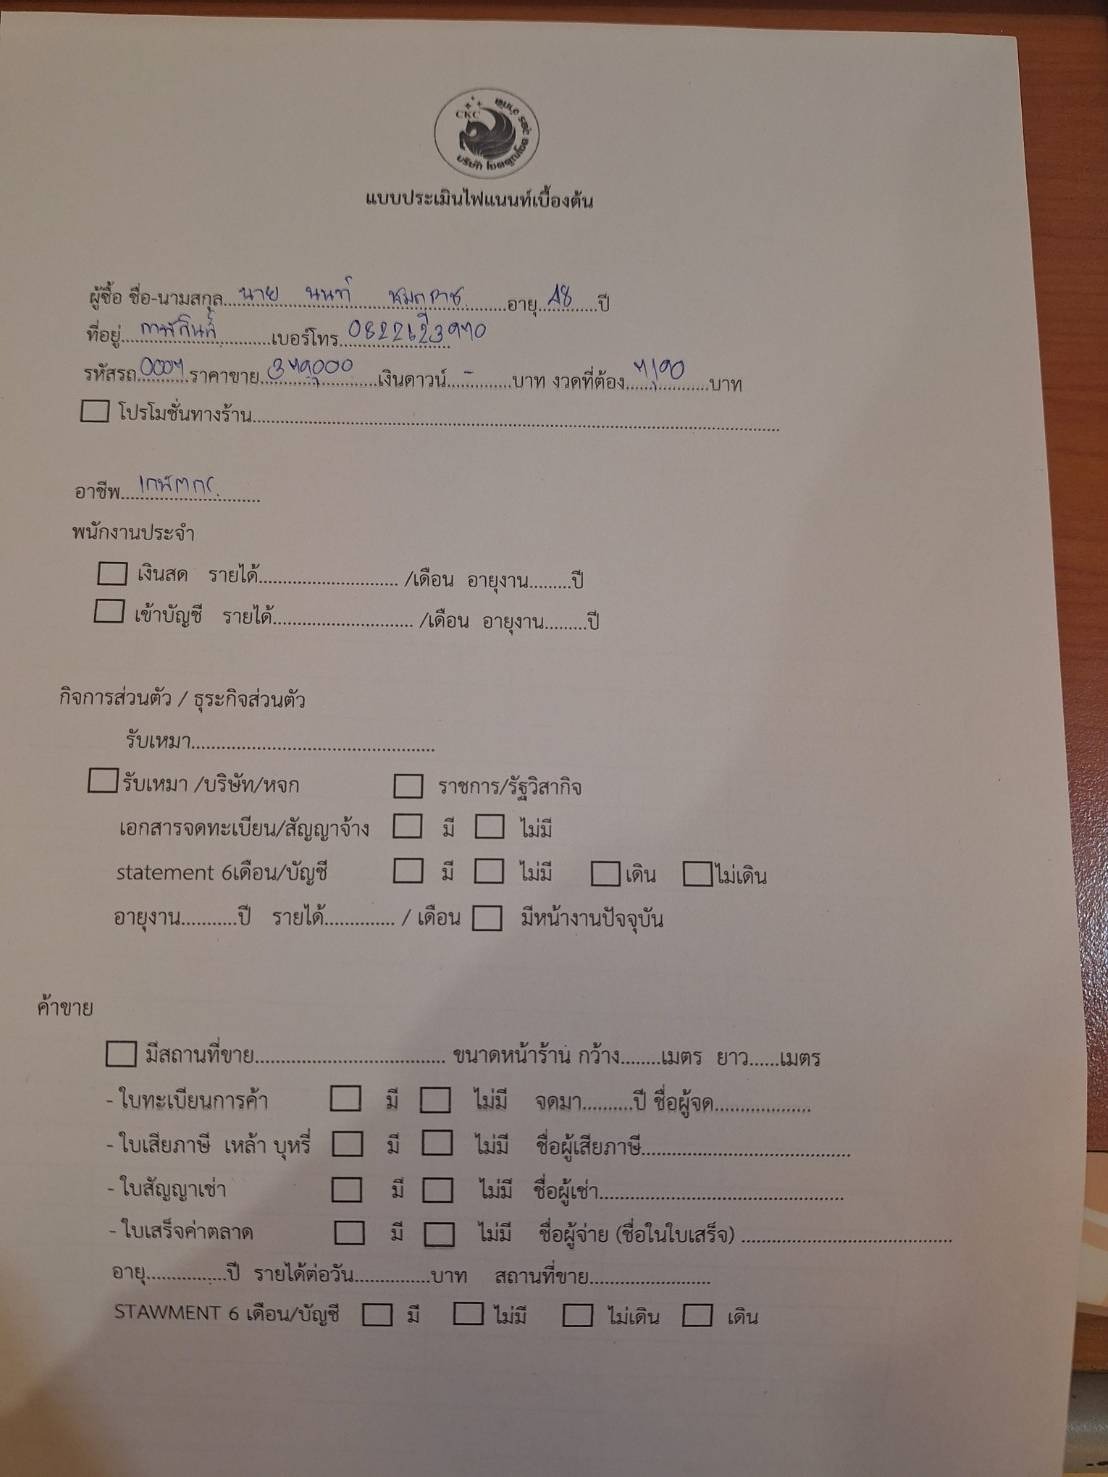 CKC
แบบประเมินไฟแนนท์เบื้องต้น
ผู้ซื้อ ชื่อ-นามสกุล....นาย นนท์....อายุ..48...ปี
ที่อยู่..กาฬสินธุ์....เบอร์โทร.
รหัสรถ.0007.ราคาขาย.379,000....เงินดาวน์...-...บาท งวดที่ต้อง..7,190...บาท
☐ โปรโมชั่นทางร้าน....
อาชีพ...เกษตกร....
พนักงานประจำ
☐ เงินสด รายได้.... /เดือน อายุงาน.........ปี
☐ เข้าบัญชี รายได้.... /เดือน อายุงาน.........ปี
กิจการส่วนตัว / ธุระกิจส่วนตัว
รับเหมา....
☐ รับเหมา /บริษัท/หจก ☐ ราชการ/รัฐวิสากิจ
เอกสารจดทะเบียน/สัญญาจ้าง ☐ มี ☐ ไม่มี
statement 6เดือน/บัญชี ☐ มี ☐ ไม่มี ☐ เดิน ☐ ไม่เดิน
อายุงาน...........ปี รายได้.............. / เดือน ☐ มีหน้างานปัจจุบัน
ค้าขาย
☐ มีสถานที่ขาย.... ขนาดหน้าร้าน กว้าง........เมตร ยาว......เมตร
- ใบทะเบียนการค้า ☐ มี ☐ ไม่มี จดมา..........ปี ชื่อผู้จด....
- ใบเสียภาษี เหล้า บุหรี่ ☐ มี ☐ ไม่มี ชื่อผู้เสียภาษี....
- ใบสัญญาเช่า ☐ มี ☐ ไม่มี ชื่อผู้เช่า....
- ใบเสร็จค่าตลาด ☐ มี ☐ ไม่มี ชื่อผู้จ่าย (ชื่อในใบเสร็จ) ....
อายุ................ปี รายได้ต่อวัน...............บาท สถานที่ขาย....
STAWMENT 6 เดือน/บัญชี ☐ มี ☐ ไม่มี ☐ ไม่เดิน ☐ เดิน